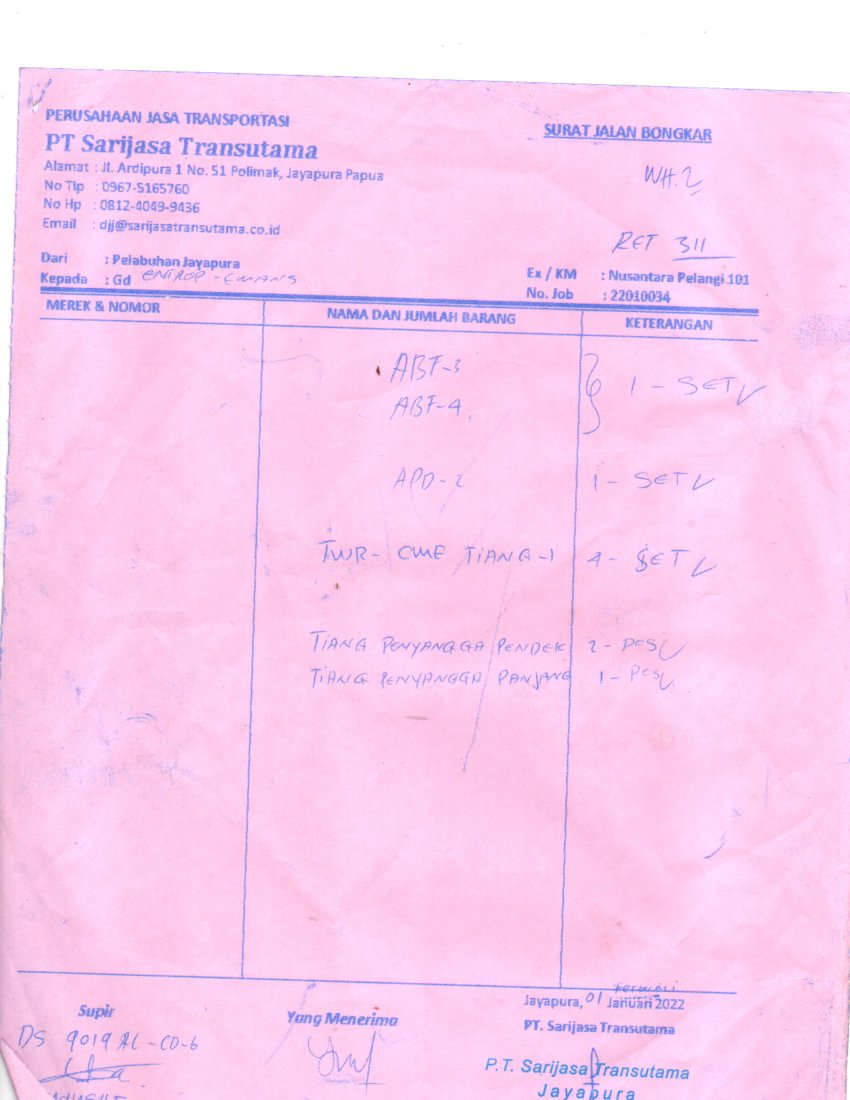 PERUSAHAAN JASA TRANSPORTASI
PT Sarijasa Transutama
Alamat : Jl. Ardipura 1 No. 51 Polimak, Jayapura Papua
No Tlp : 0967-5165760
No Hp : 0812-4049-9436
Email : djj@sarijasatransutama.co.id
SURAT JALAN BONGKAR
WH.2
RET 311
Dari : Pelabuhan Jayapura
Kepada : Gd ENTROP -
Ex / KM : Nusantara Pelangi 101
No. Job : 22010034
MEREK & NOMOR NAMA DAN JUMLAH BARANG KETERANGAN
ABF-3
ABF-4 1 - SET
APD-2 1 - SET
TWR- CME TIANG-1 4 - SET
TIANG PENYANGGA PENDEK 2 - PCS
TIANG PENYANGGA PANJANG 1 - PCS
Jayapura, 01 Januari 2022
Supir Yang Menerima PT. Sarijasa Transutama
DS 9019 AL - CD-6
P.T. Sarijasa Transutama
Jayapura